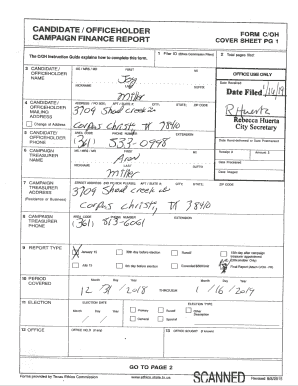 CANDIDATE / OFFICEHOLDER
CAMPAIGN FINANCE REPORT
FORM C/OH
COVER SHEET PG 1
The C/OH Instruction Guide explains how to complete this form.
1 Filer ID (Ethics Commission Filers)
2 Total pages filed:
3 CANDIDATE / OFFICEHOLDER NAME
MS / MRS / MR
FIRST
MI
Joy
NICKNAME
LAST
SUFFIX
Miller
OFFICE USE ONLY
Date Filed
R Huerta
Rebecca Huerta
City Secretary
4 CANDIDATE / OFFICEHOLDER MAILING ADDRESS
Change of Address
ADDRESS / PO BOX; APT / SUITE #; CITY; STATE; ZIP CODE
3709
Corpus Christi, TX 78410
5 CANDIDATE / OFFICEHOLDER PHONE
AREA CODE
PHONE NUMBER
EXTENSION
(361) 533-0998
Date Hand-delivered or Date Postmarked
6 CAMPAIGN TREASURER NAME
MS / MRS / MR
FIRST
MI
NICKNAME
LAST
SUFFIX
Miller
Receipt #
Amount $
Date Processed
Date Imaged
7 CAMPAIGN TREASURER ADDRESS
(Residence or Business)
STREET ADDRESS (NO PO BOX PLEASE); APT / SUITE #; CITY; STATE; ZIP CODE
3709
Corpus Christi, TX 78410
8 CAMPAIGN TREASURER PHONE
AREA CODE
PHONE NUMBER
EXTENSION
(361)
9 REPORT TYPE
January 15
30th day before election
Runoff
15th day after campaign treasurer appointment (Officeholder Only)
July 15
8th day before election
Exceeded $500 limit
Final Report (Attach C/OH - FR)
10 PERIOD COVERED
Month Day Year
THROUGH
Month Day Year
12 / 31 / 2018
1 / 16 / 2019
11 ELECTION
ELECTION DATE
Month Day Year
ELECTION TYPE
Primary
Runoff
Other
Description
General
Special
12 OFFICE
OFFICE HELD (if any)
13 OFFICE SOUGHT (if known)
GO TO PAGE 2
Forms provided by Texas Ethics Commission
www.ethics.state.tx.us
SCANNED